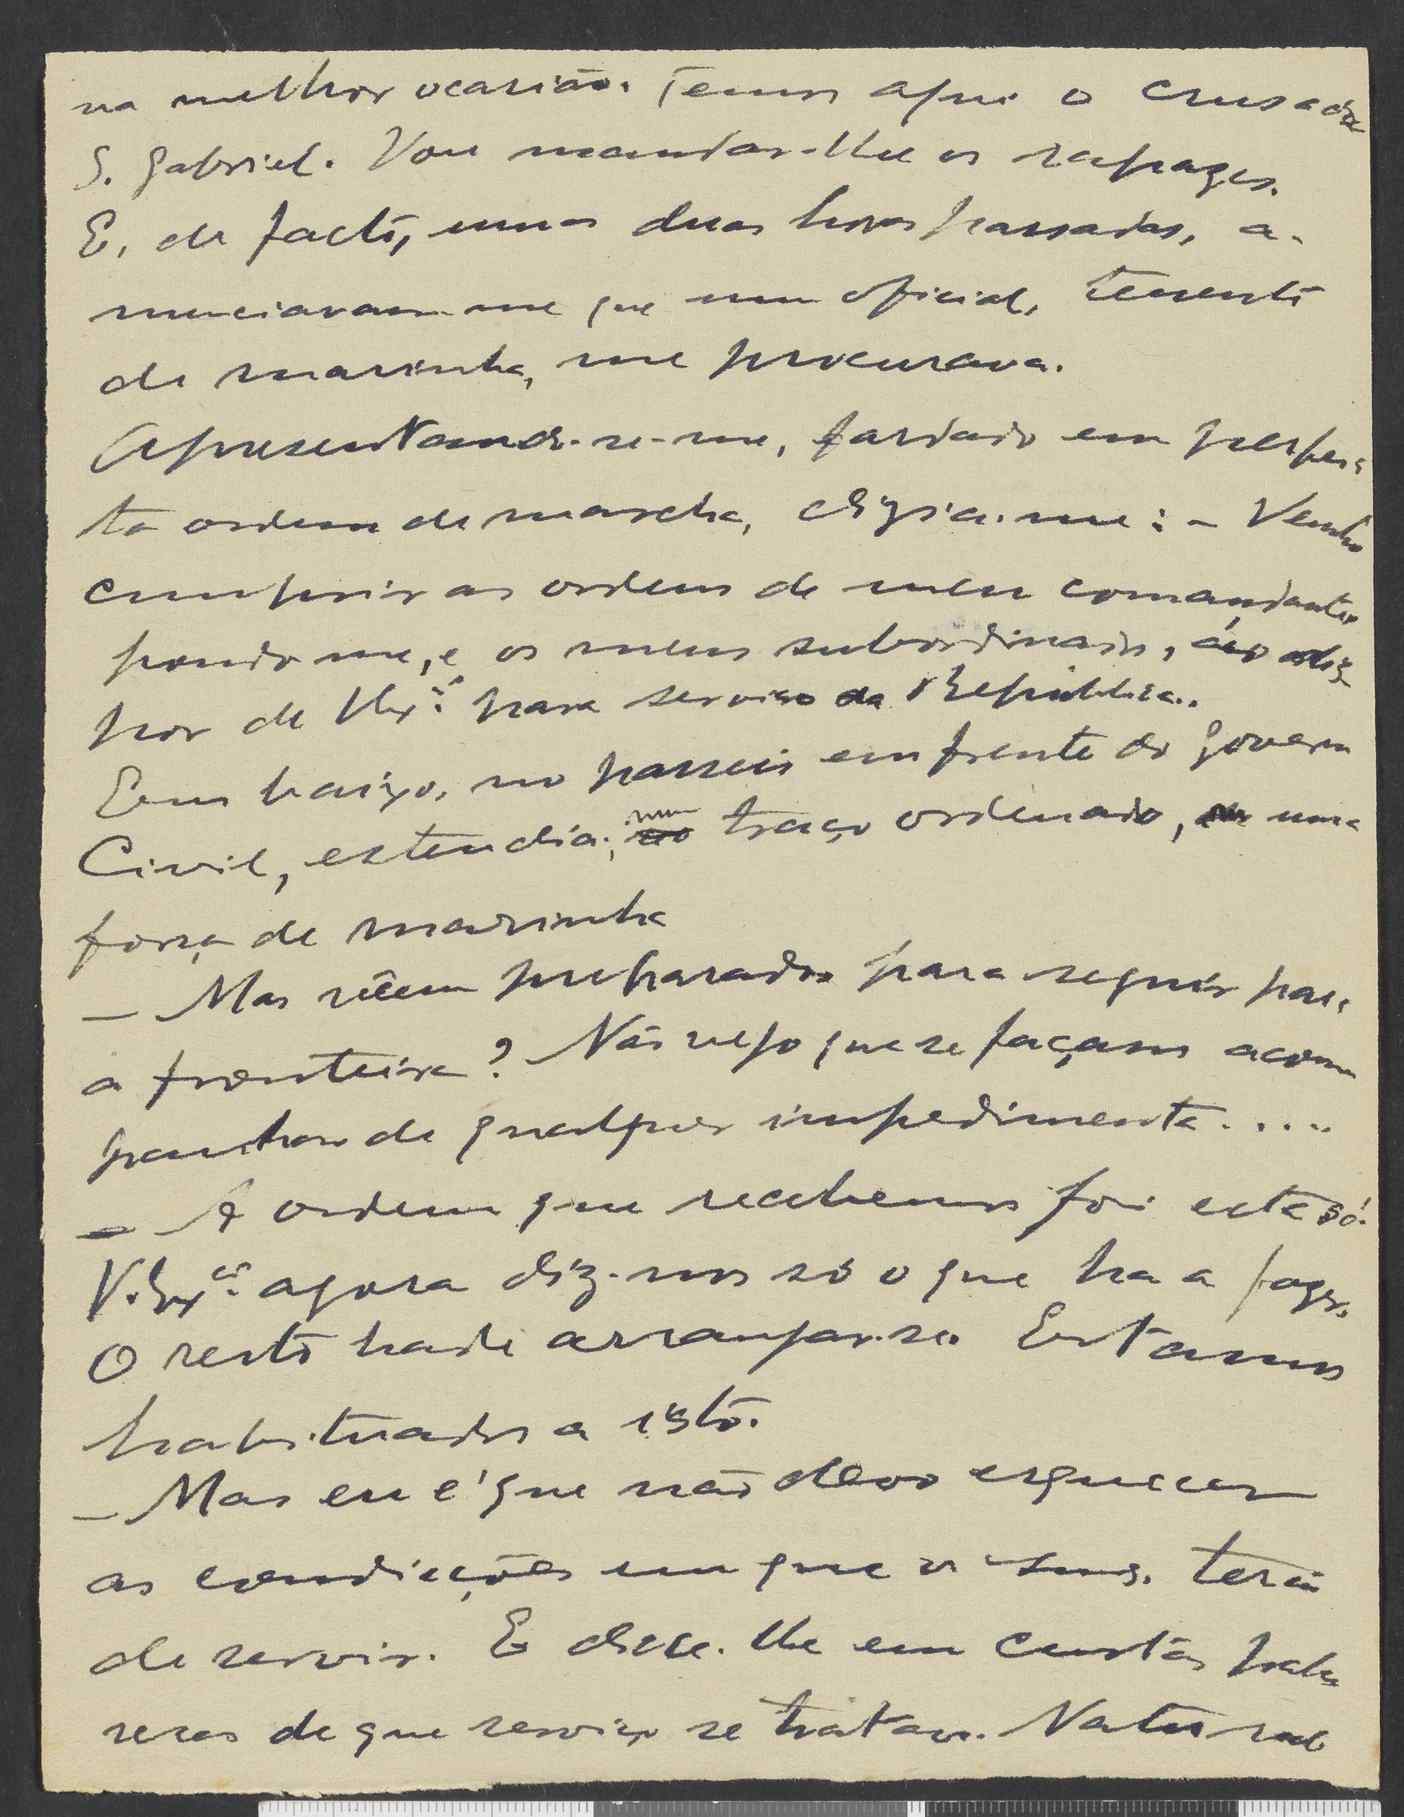 na melhor ocasião. Temos aqui o crusador
S. Gabriel. Vou mandar-lhe os rapazes.
E, de facto, umas duas horas passadas, a-
nunciavam-me que um oficial, tenente
de marinha, me procurava.
Apresentando-se-me, fardado em perfei-
ta ordem de marcha, dizia-me: – Venho
cumprir as ordens de meu comandante,
pondo-me, e os meus subordinados, ao dis-
por de V.Ex.cia para serviço da Republica.
Em baixo, no passeio em frente do Governo
Civil, estendia, num traço ordenado, uma
força de marinha
– Mas veem preparados para seguir para
a fronteira? Não vejo que se façam acom
panhar de qualquer impedimenta.....
– A ordem que recebemos foi esta só.
V.Ex.cia agora diz-nos só o que ha a fazer.
O resto hade arranjar-se. Estamos
habituados a isto.
– Mas eu é que não devo esquecer
as condicções em que os snrs. terão
de servir. E disse-lhe em curtas pala
vras de que serviço se tratava. Natural